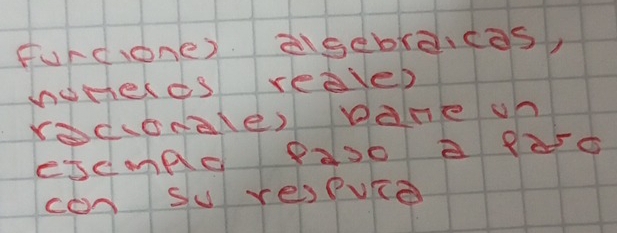 funciones algebraicas,
numeros reales
racionales dame un
ejemplo paso a paso
con su resputa